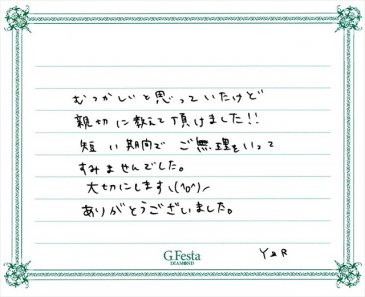 むつかしいと思っていたけど
親切に教えて頂けました!!
短い期間でご無理をいって
すみませんでした。
大切にします\(^o^)/
ありがとうございました。
G.Festa
DIAMOND
Y&R